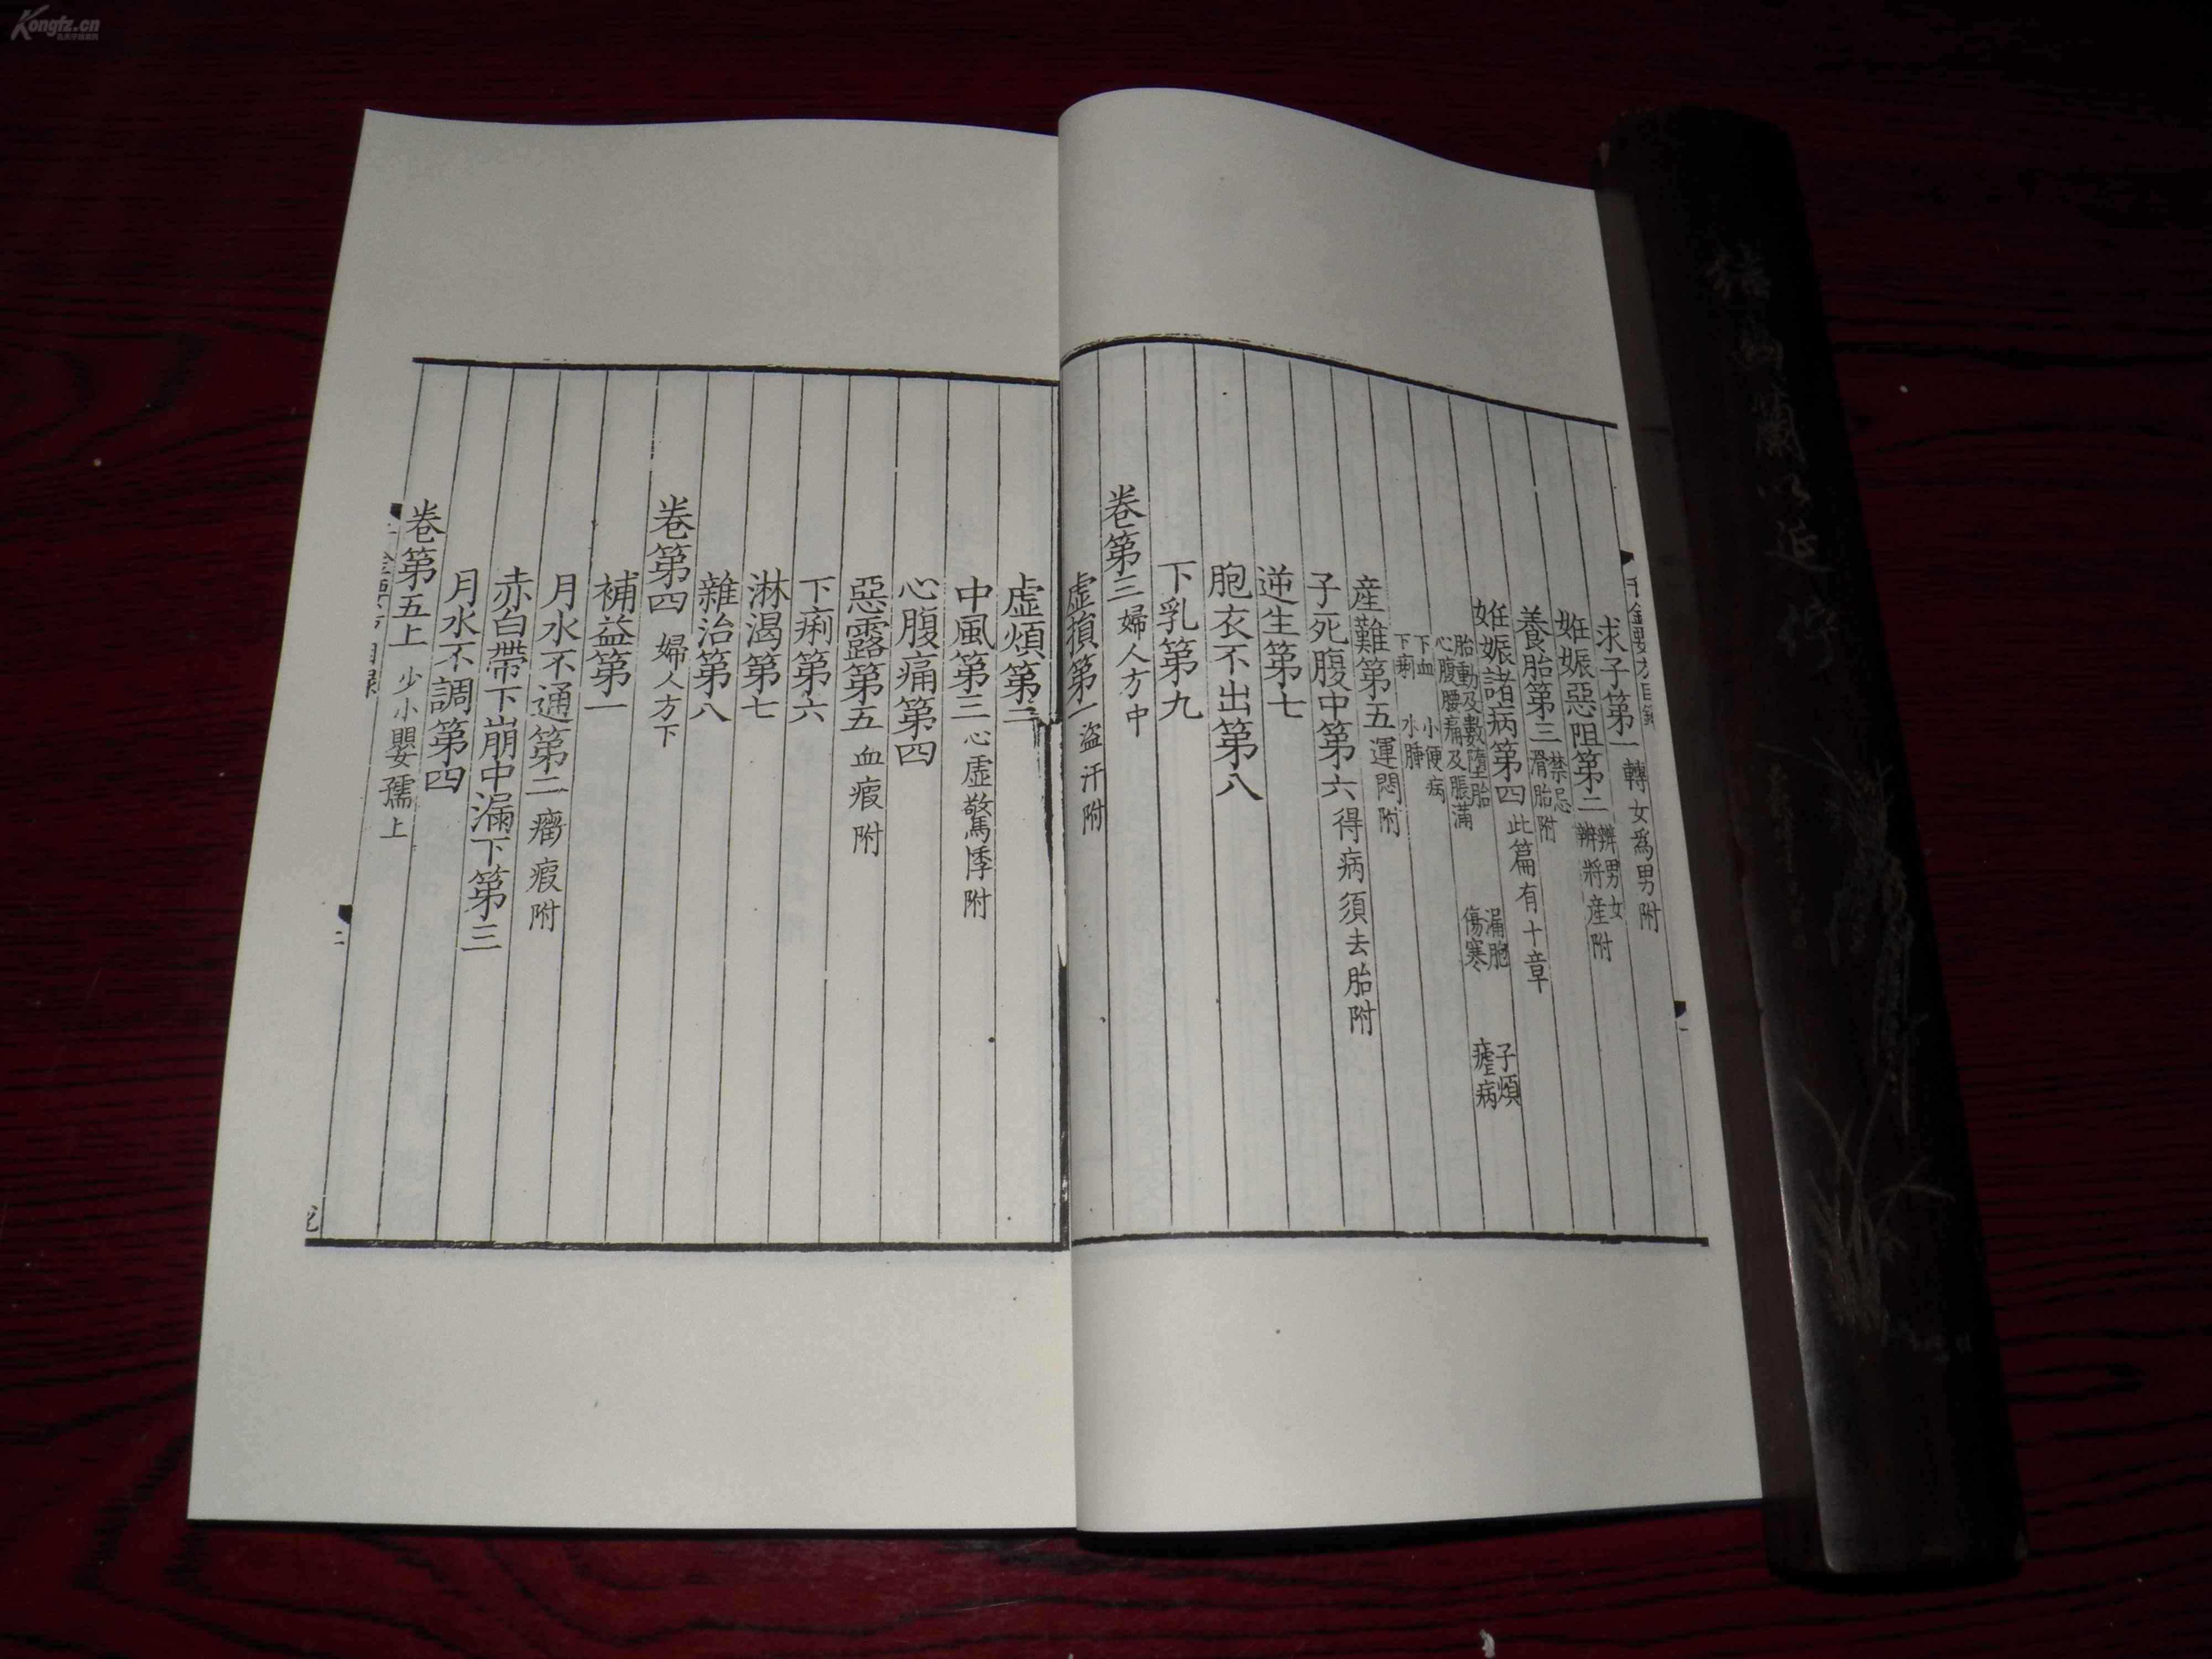 Kongfz.cn
千金要方目録
求子第一 轉女爲男附
妊娠惡阻第二 辨男女 辨將産附
養胎第三 禁忌 滑胎附
妊娠諸病第四 此篇有十章
胎動及數墮胎 漏胞 子煩
心腹腰痛及脹滿 傷寒 瘧病
下血 小便病
下痢 水腫
産難第五 運悶附
子死腹中第六 得病須去胎附
逆生第七
胞衣不出第八
下乳第九
卷第三 婦人方中
虛損第一 盜汗附
虛煩第二
中風第三 心虛驚悸附
心腹痛第四
惡露第五 血瘕附
下痢第六
淋渴第七
雜治第八
卷第四 婦人方下
補益第一
月水不通第二 癥瘕附
赤白帶下崩中漏下第三
月水不調第四
卷第五上 少小嬰孺上
二
結幽蘭以延佇